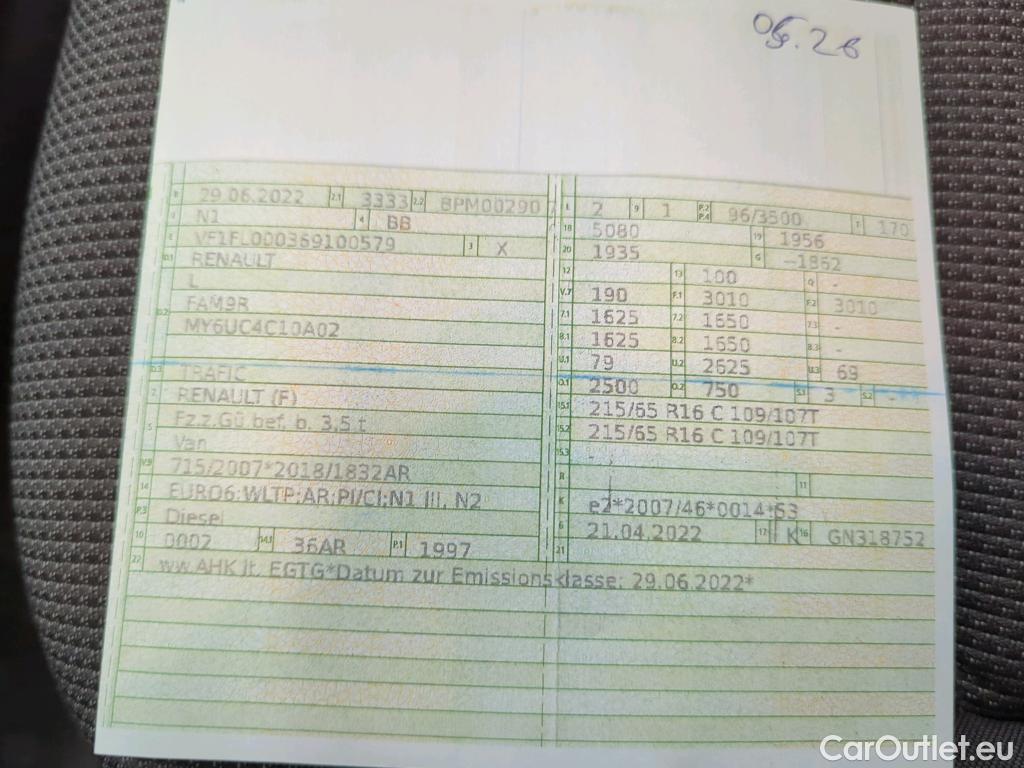 06.26
B 29.06.2022 2.1 3333 2.2 BPM00290 7
J N1 4 BB
E VF1FL000369100579 3 X
D.1 RENAULT
L
D.2 FAM9R
MY6UC4C10A02
D.3 TRAFIC
2 RENAULT (F)
5 Fz.z.Gü.bef. b. 3,5 t
Van
V.9 715/2007*2018/1832AR
14 EURO6;WLTP;AR;PI/CI;N1 III, N2
P.3 Diesel
10 0002 14.1 36AR P.1 1997
22 ww.AHK lt. EGTG*Datum zur Emissionsklasse: 29.06.2022*
L 2 9 1 P.2 P.4 96/3500 T 170
18 5080 19 1956
20 1935 G -1862
12 13 100 Q -
V.7 190 F.1 3010 F.2 3010
7.1 1625 7.2 1650 7.3 -
8.1 1625 8.2 1650 8.3 -
U.1 79 U.2 2625 U.3 69
O.1 2500 O.2 750 S.1 3 S.2 -
15.1 215/65 R16 C 109/107T
15.2 215/65 R16 C 109/107T
15.3 -
R 11
K e2*2007/46*0014*63
6 21.04.2022 17 K 16 GN318752
21
CarOutlet.eu